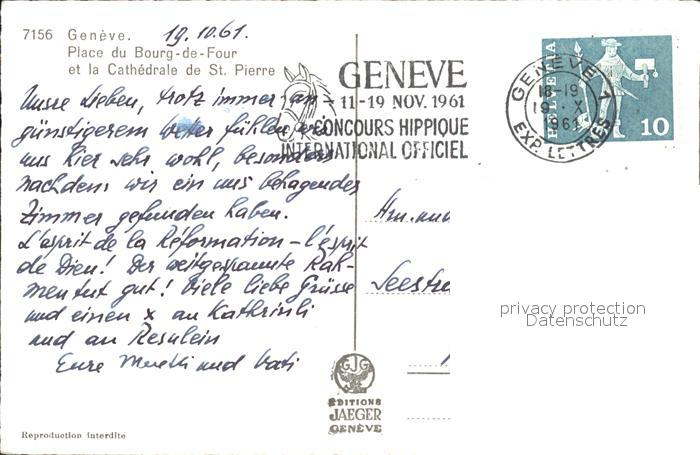 7156 Genève. 19.10.61.
Place du Bourg-de-Four
et la Cathédrale de St. Pierre
Unsre Lieben, trotz immer un-
günstigerem Wetter fühlen wir
uns hier sehr wohl, besonders
nachdem wir ein uns behagendes
Zimmer gefunden haben.
L'esprit de la Réformation – l'ésprit
de Dieu! Der weitgespannte Rah-
men tut gut! Viele liebe Grüsse
und einen x an Kathrinli
und an Resulein
Eure Muetti und Vati
Reproduction interdite
GENEVE
11-19 NOV. 1961
CONCOURS HIPPIQUE
INTERNATIONAL OFFICIEL
GENÈVE 1
18-19
19 · X
1961
EXP. LETTRES
HELVETIA
10
Hrn. und
Seestr
privacy protection
Datenschutz
GJG
EDITIONS
JAEGER
GENÈVE